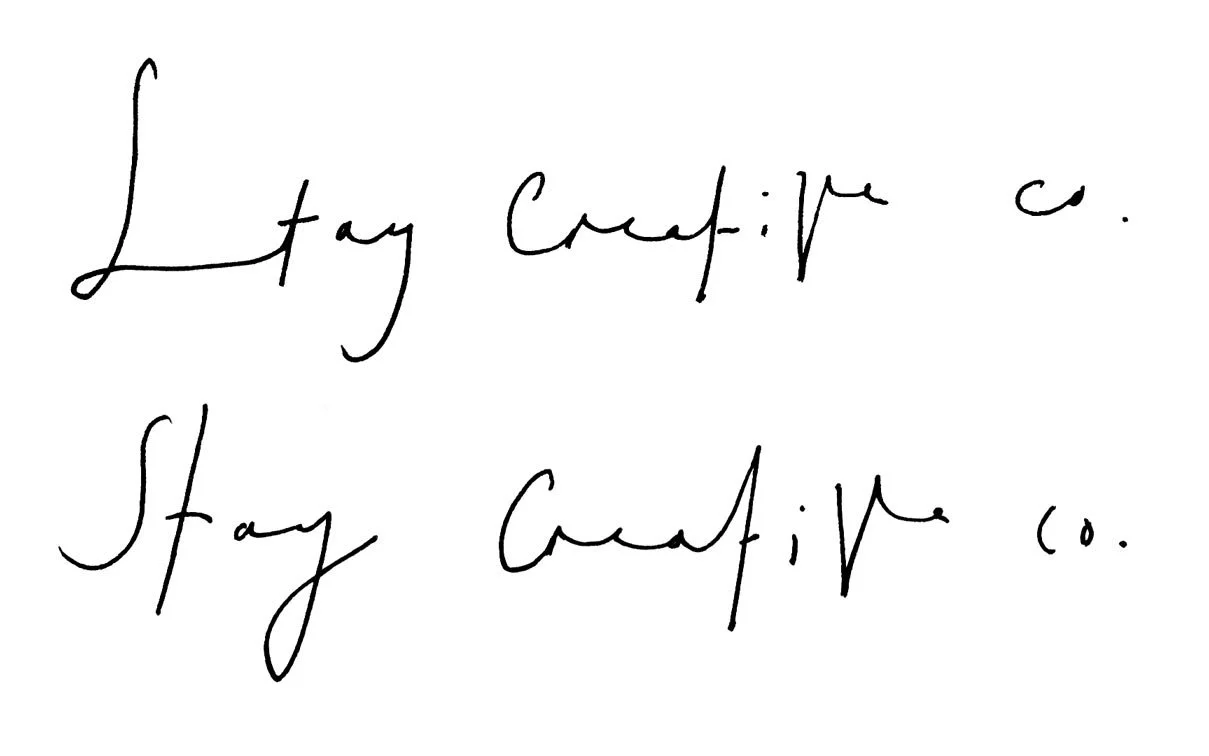 Stay Creative co.
Stay Creative co.